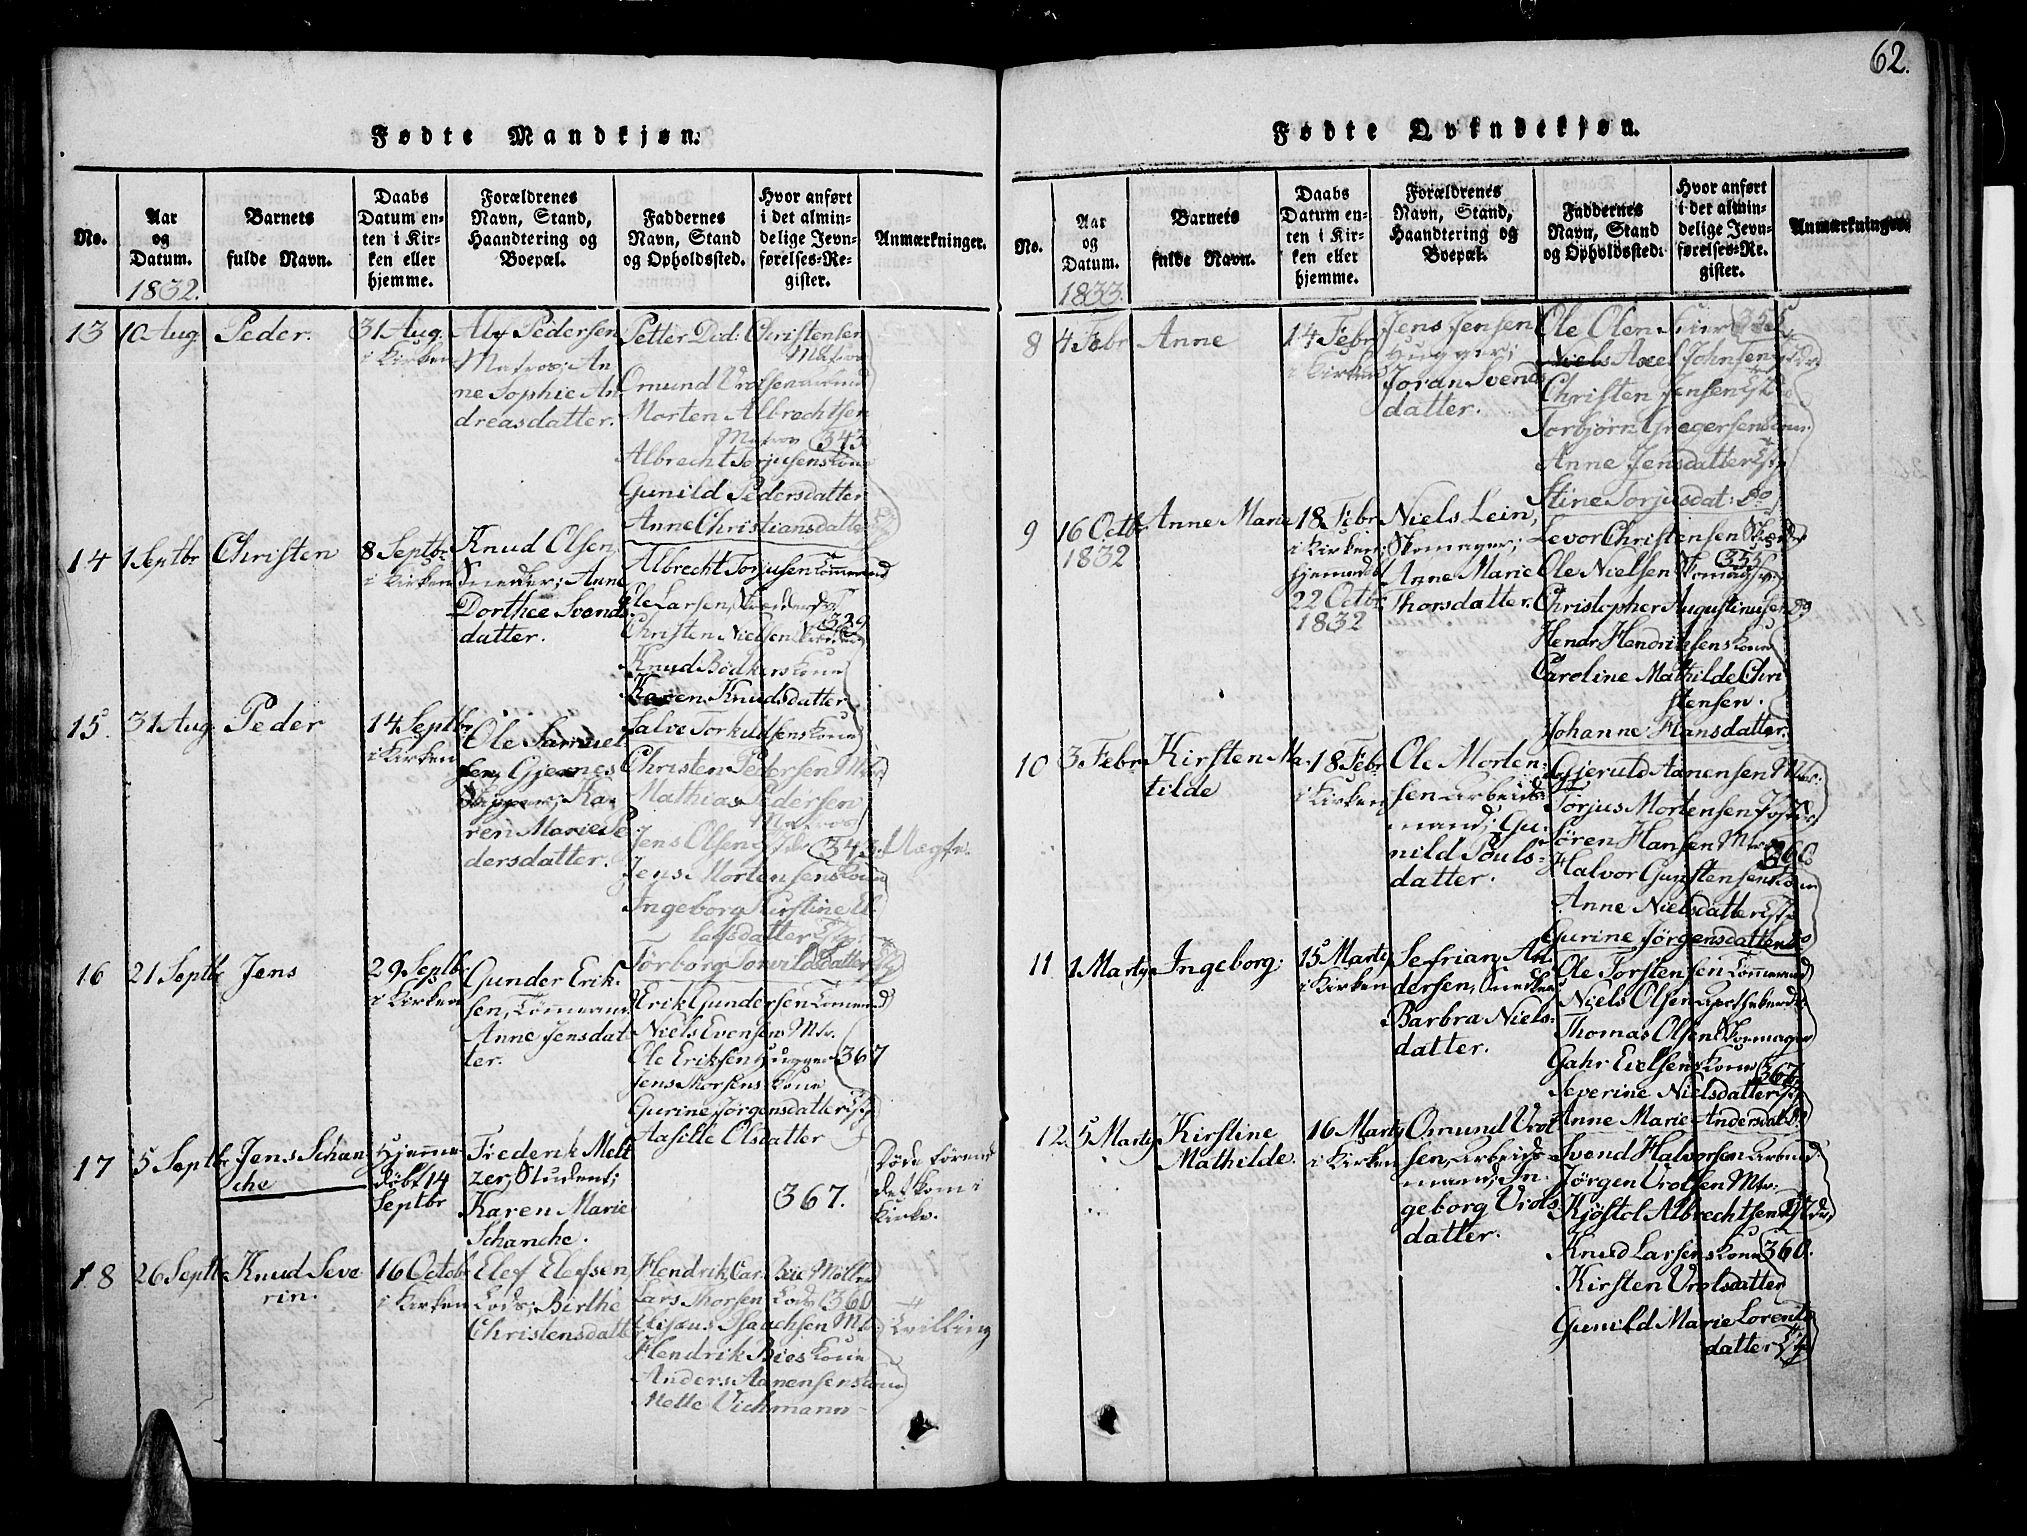 62.
Fødte Mandkjøn.
No.
Aar og Datum.
1832.
Barnets fulde Navn.
Daabs Datum enten i Kirken eller hjemme.
Forældrenes Navn, Stand, Haandtering og Boepæl.
Faddernes Navn, Stand og Opholdssted.
Hvor anført i det almindelige Jevnførelses-Register.
Anmærkninger.
13
10 Aug
Peder.
31 Aug.
i Kirken
Alf Pedersen
Matros; An
ne Sophie An
dreasdatter.
Petter Did: Christensen
Matros
Omund Vrolsen
Morten Albrechtsen
Matros 343
Albrecht Torjusens Kone
Gunild Pedersdatter
Anne Christiansdatter
14
1 Septbr
Christen
8 Septbr
i Kirken
Knud Olsen
Sneder; Anne
Dorthee Svends
datter.
Albrecht Torjusen Tømmermd
Ole Larsen,
329
Christen Nielsen
Knud Bødkers Kone
Karen Knudsdatter
15.
31 Aug
Peder
14 Septbr
i Kirken
Ole Samuel
sen, Gjernes
Skipper; Ka
ren Marie Pe
dersdatter.
Salve Torkildsens Kone
Christen Pedersen Mtr
Mathias Pedersen
Matros
Jens Olsen 343.
Jens Mortensens Kone
Ingeborg Kirstine El
lefsdatter
Torborg
16
21 Septbr
Jens
29 Septbr
i Kirken
Gunder Erik
sen, Tømmermd
Anne Jensdat
ter.
Erik Gundersen Tømmermd
Niels Evensen Mtr.
Ole Eriksen Hugger 367
Jens Thorsens Kone
Gurine Jørgensdatter
Aasille Olsdatter
17
5 Septbr
Jens Schan
che
Hjemme
døbt 14
Septbr
Frederik Melt
zer, Student;
Karen Marie
Schanche.
367.
Døde førend
det kom i
Kirke.
18
26 Septbr
Knud Seve
rin.
16 Octobr
i Kirken
Elef Elefsen,
Lods; Birthe
Christensdatt
Hendrik Car. Bie Møller
Lars Thorsen Lods 360
Elisæus Isaachsen Mtr
Hendrik Bies Kone
Anders Aanensens Kone
Mette Vichmann
Tvilling
Fødte Qvindekjøn.
No.
Aar og Datum.
1833.
Barnets fulde Navn.
Daabs Datum enten i Kirken eller hjemme.
Forældrenes Navn, Stand, Haandtering og Boepæl.
Faddernes Navn, Stand og Opholdssted.
Hvor anført i det almindelige Jevnførelses-Register.
Anmærkninger.
8
4 Febr
Anne
14 Febr
i Kirken
Jens Jensen
Hugger;
Joran Svends
datter.
Ole Olsen
355
Niels Axel Johnsen
Christen Jensen
Torbjørn Gregersens Kone
Anne Jensdatter
Stine Torjusdat: do
9
16 Octbr
1832
Anne Marie
18 Febr
i Kirken;
hjemmedt
22 Octbr
1832
Niels Lein,
Skomager;
Anne Marie
Thorsdatter.
Levor Christensen
355
Ole Nielsen
Christopher Augustinusen do
Hendr Hendriksens Kone
Caroline Mathilde Chri
stensen.
Johanne Hansdatter.
10
3 Febr
Kirsten Ma
tilde
18 Febr
i Kirken
Ole Morten
sen Arbeids
mand; Gu
nild Pouls
datter.
Gjeruld Aanensen Mtr.
Torjus Mortensen
Søren Hansen Mtr
360
Halvor Gunstensens Kone
Anne Nielsdatter
Gurine Jørgensdatter do
11
1 Marty
Ingeborg.
15 Marty
i Kirken
Sefrian An
dersen, Snedker
Barbra Niels
datter.
Ole Torstensen Tømmermd
Niels Olsen
Thomas Olsen Skomager
Gahr Eielsens Kone 367
Severine Nielsdatter
Anne Marie Andersdat: do
12.
5 Marty
Kirstine
Mathilde.
16 Marty
i Kirken
Omund Vrol
sen, Arbeids
mand; In
geborg Vrols
datter.
Svend Halvorsen Arbmd.
Jørgen Vrolsen Mtr.
Kjøstol Albrechtsen
Knud Larsens Kone 360.
Kirsten Vrolsdatter
Gunild Marie Lorents
datter